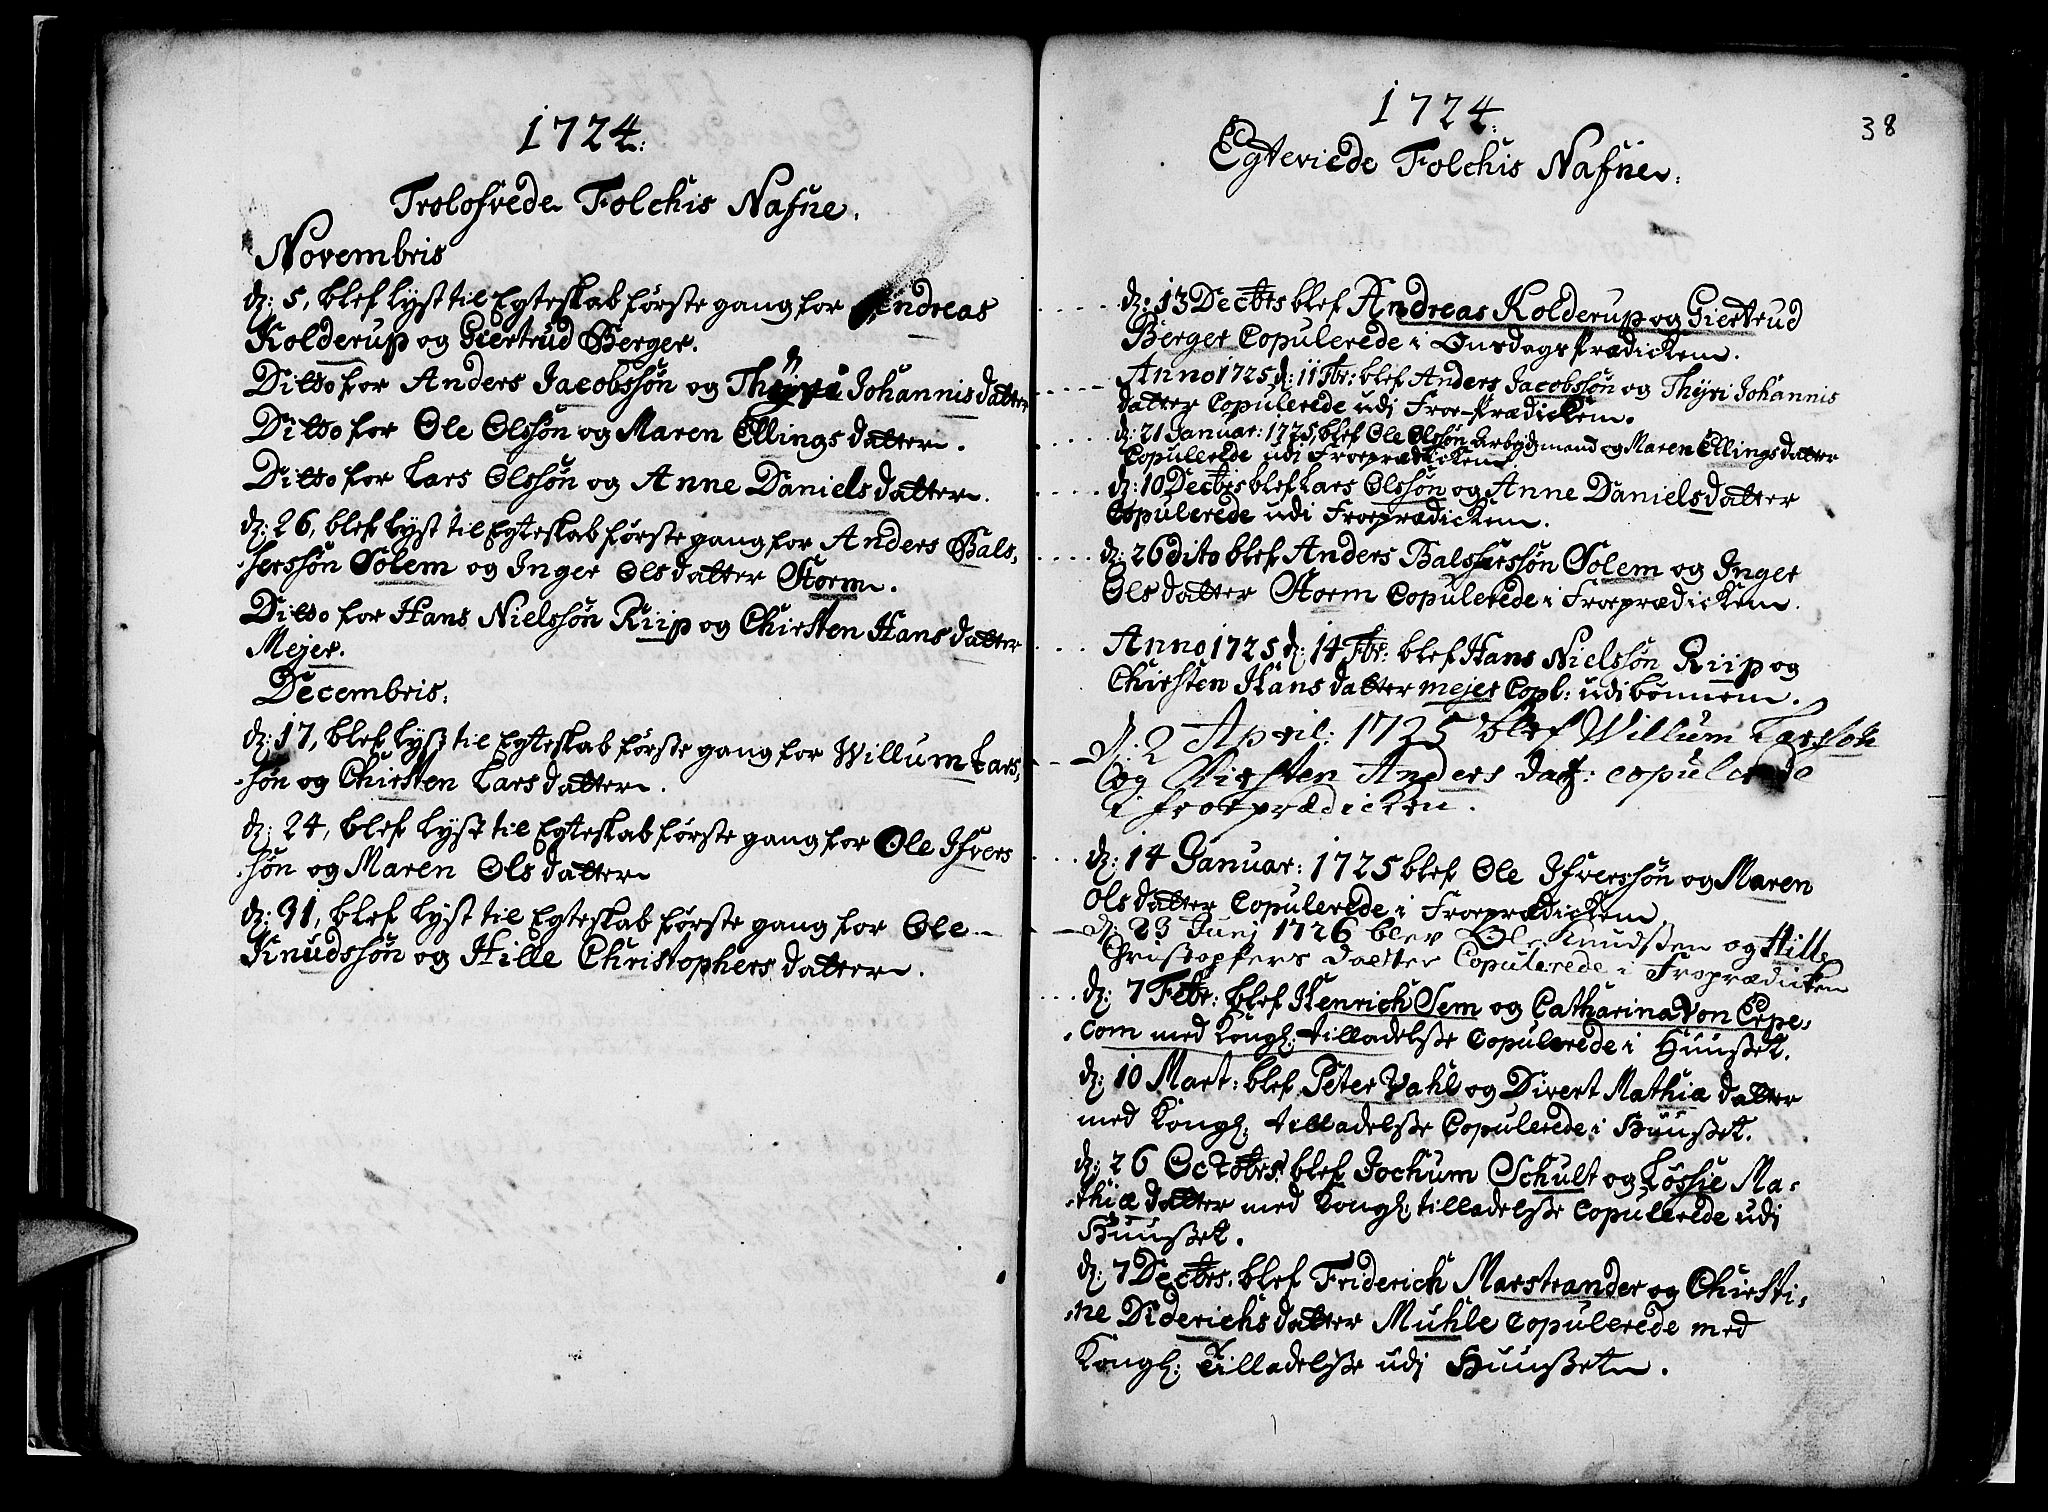 1724.
Trolofvede Folchis Nafne.
Novembris
dz: 5, blef lyst til Egteskab første gang for Andreas
Kolderup og Giertrud Berger.
Ditto for Anders Jacobssøn og Thyri Johannis datter
Ditto for Ole Olssøn og Maren Ellings datter.
Ditto for Lars Olssøn og Anne Daniels datter.
dz: 26, blef lyst til Egteskab første gang for Anders Bals,
,serssøn Solem og Inger Ols datter Storm.
Ditto for Hans Nielssøn Riip og Chirsten Hans datter
Mejer.
Decembris.
dz: 17, blef lyst til Egteskab første gang for Willum Lars,
,søn og Chirsten Lars datter.
dz: 24, blef lyst til Egteskab første gang for Ole Ifvers
,søn og Maren Ols datter
dz: 31, blef lyst til Egteskab første gang for Ole
Knudssøn og Hille Christophers datter.
38
1724.
Egteviede Folchis Nafne.
dz: 13 Decbrs blef Andreas Kolderup og Giertrud
Berger Copulerede i Onsdags prædicken.
Anno 1725 d: 11 Fbr: blef Anders Jacobssøn og Thyri Johannis
datter Copulerede udi Froe-prædicken.
dz: 21 Januar: 1725, blef Ole Olssøn Arbejdsmand og Maren Ellings datter
Copulerede udi Froeprædicken
dz: 10 Decbrs blef Lars Olssøn og Anne Daniels datter
Copulerede udi Froeprædicken.
dz: 26 dito blef Anders Balsserssøn Solem og Inger
Ols datter Storm Copulerede i Froeprædicken.
Anno 1725 d: 14 Fbr: blef Hans Nielssøn Riip og
Chirsten Hans datter mejer Copl: udi bønnen.
d. 2 April: 1725 blef Willum Larssøn
og Kirsten Anders dat: copulerede
i froeprædicken.
dz: 14 Januar: 1725 blef Ole Ifverssøn og Maren
Ols datter Copulerede i Froeprædicken.
d. 23 Junj 1726 blev Ole Knudssen og Hille
Christophers daetter Copulerede i Froprædicken
dz: 7 Febr: blef Henrich Sem og Catharina Von Erpe,
,com med Kongl: tilladelsse Copulerede i Huusset.
dz: 10 Mart: blef Peter Vahl og Divert Mathiæ datter
med Kongl: tilladelsse Copulerede i Huusset.
dz: 26 Octobrs: blef Jochum Schult og Løssie Ma,
,thiæ datter med Kongl: tilladelsse Copulerede udi
Huusset.
dz: 7 Decbrs. blef Friderich Marstrander og Chirsti,
,ne Diderichs datter Muhle Copulerede med
Kongl: Tilladelsse udi Huusset.